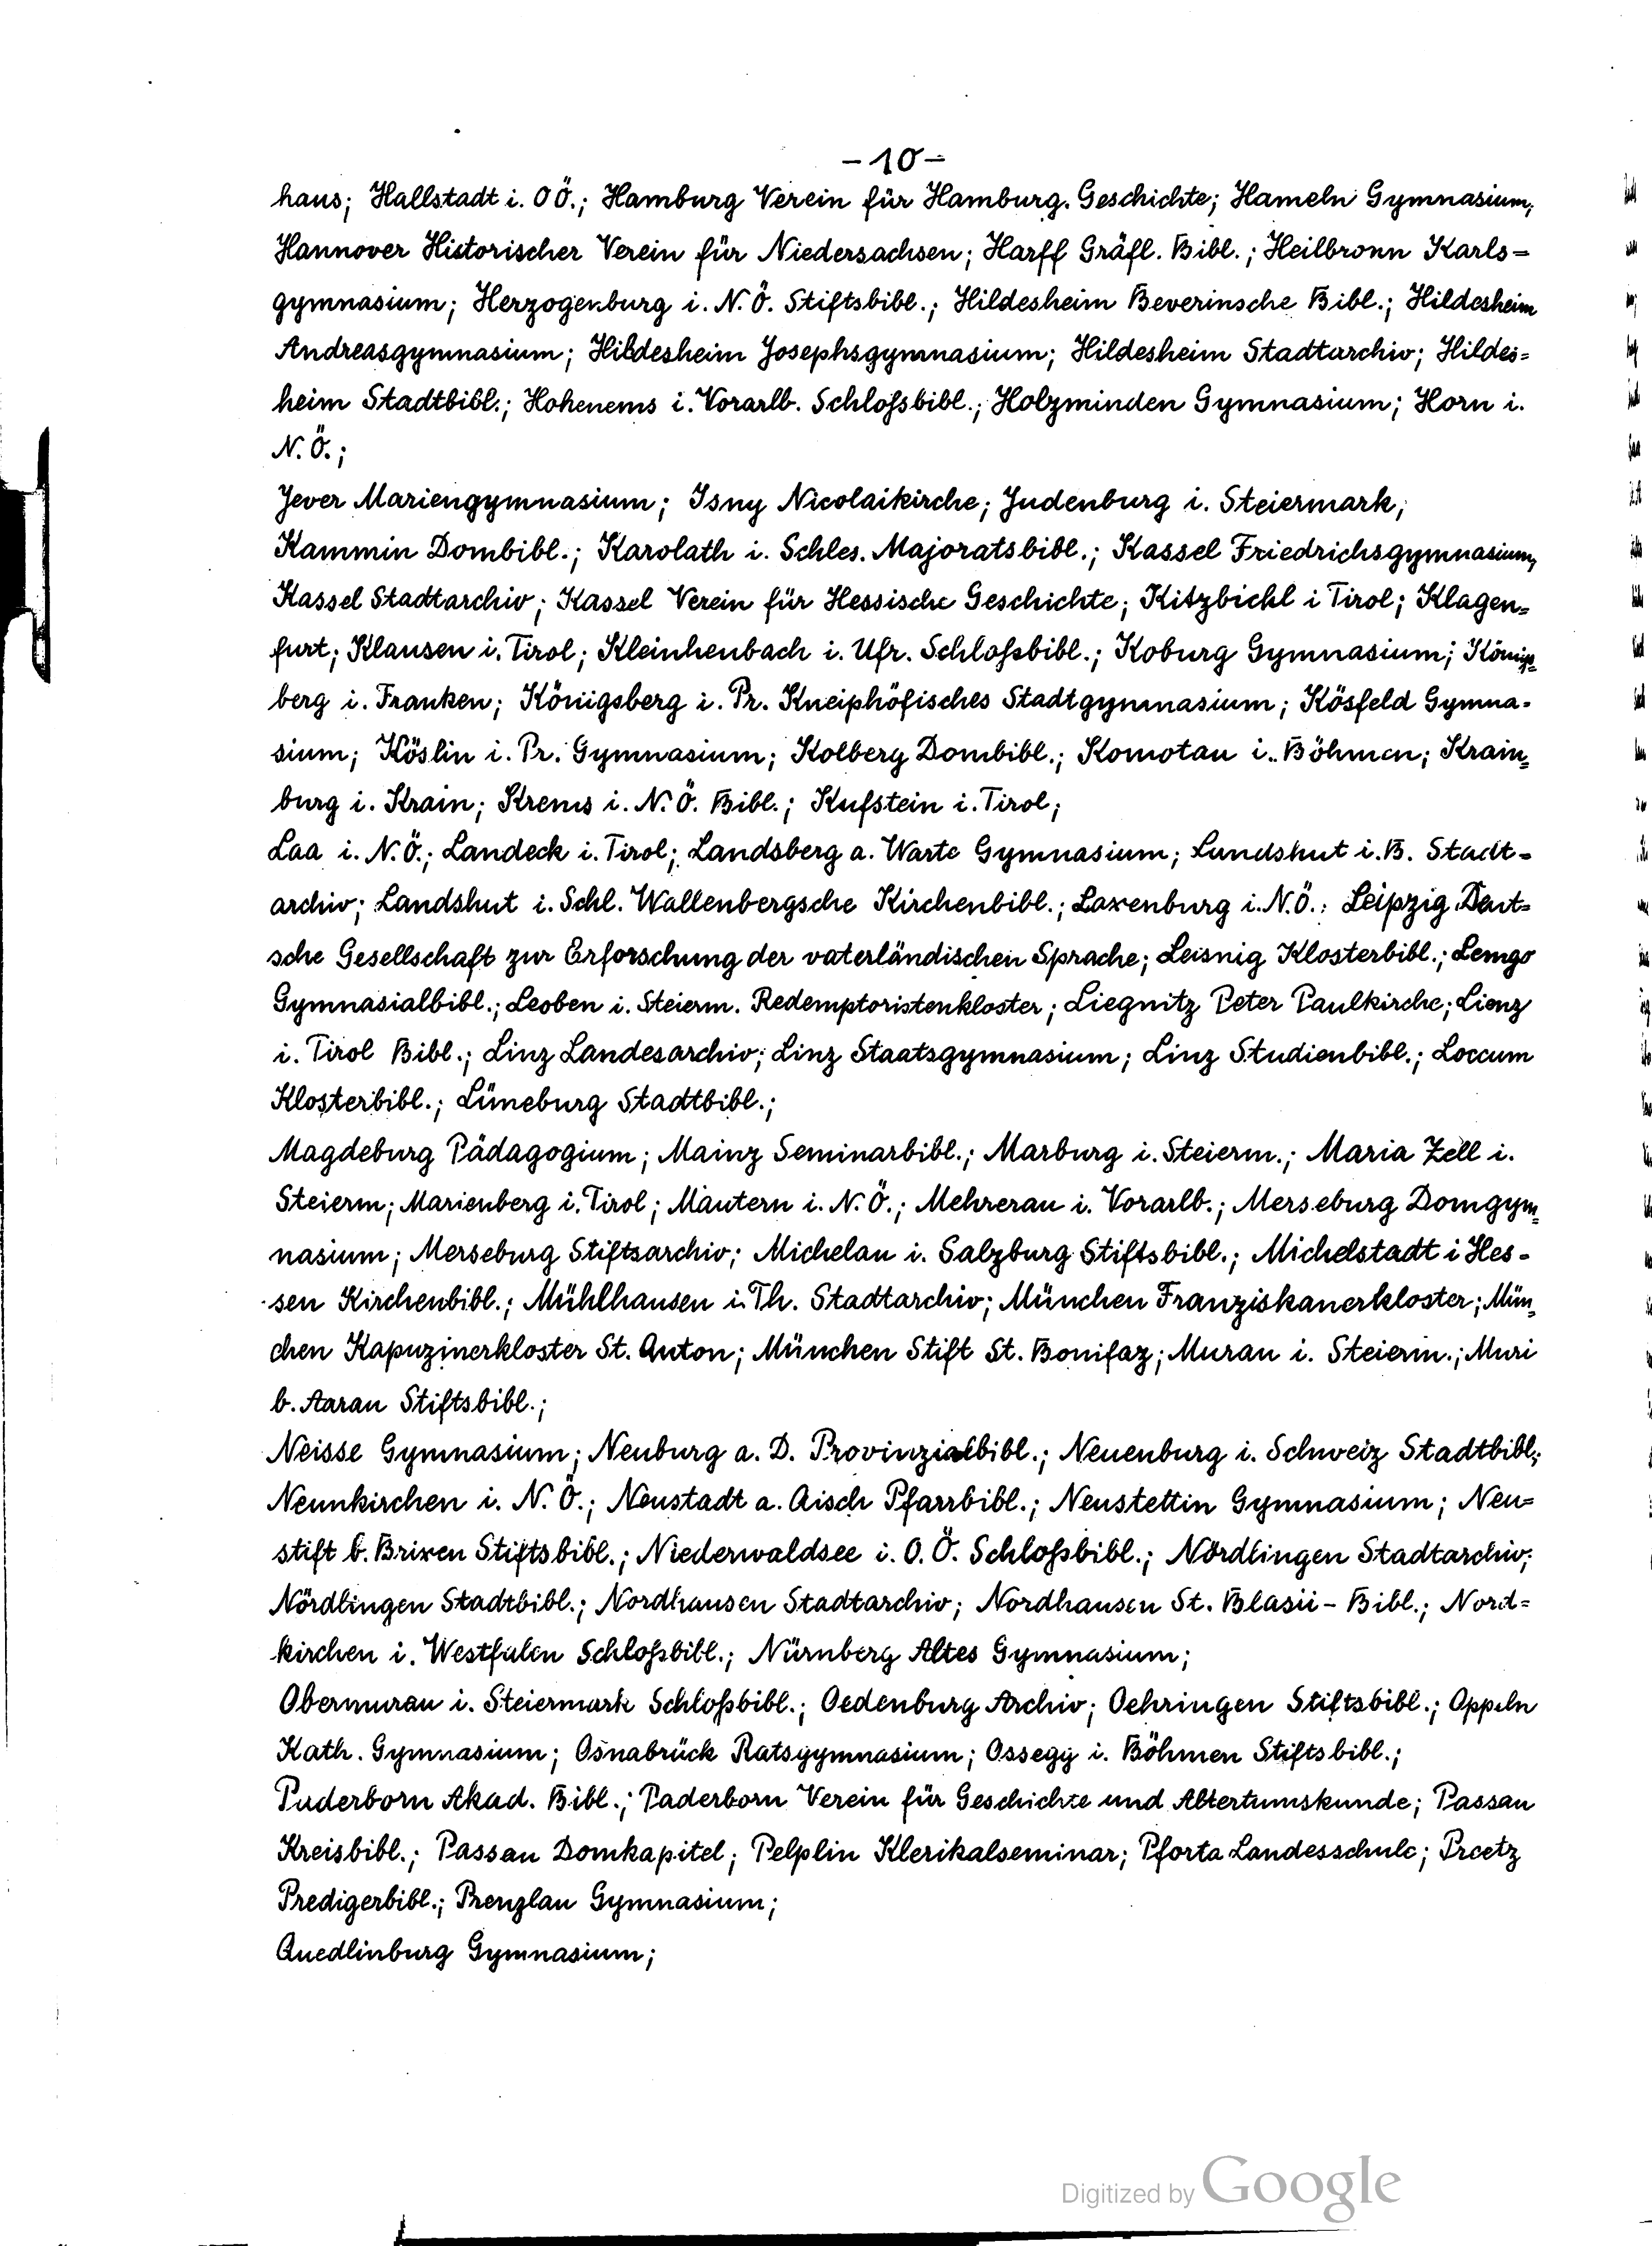 -10-
haus; Hallstadt i. OÖ.; Hamburg Verein für Hamburg. Geschichte; Hameln Gymnasium;
Hannover Historischer Verein für Niedersachsen; Harff Gräfl. Bibl.; Heilbronn Karls=
gymnasium; Herzogenburg i. N.Ö. Stiftsbibl.; Hildesheim Beverinsche Bibl.; Hildesheim
Andreasgymnasium; Hildesheim Josephsgymnasium; Hildesheim Stadtarchiv; Hildes=
heim Stadtbibl.; Hohenems i. Vorarlb. Schloßbibl.; Holzminden Gymnasium; Horn i.
N.Ö.;
Jever Mariengymnasium; Isny Nicolaikirche; Judenburg i. Steiermark;
Kammin Dombibl.; Karolath i. Schles. Majoratsbibl.; Kassel Friedrichsgymnasium;
Kassel Stadtarchiv; Kassel Verein für Hessische Geschichte; Kitzbichl i Tirol; Klagen=
furt; Klausen i. Tirol; Kleinhenbach i. Ufr. Schloßbibl.; Koburg Gymnasium; Königs=
berg i. Franken; Königsberg i. Pr. Kneiphöfisches Stadtgymnasium; Kösfeld Gymna=
sium; Köslin i. Pr. Gymnasium; Kolberg Dombibl.; Komotau i. Böhmen; Krain=
burg i. Krain; Krems i. N.Ö. Bibl.; Kufstein i. Tirol;
Laa i. N.Ö.; Landeck i. Tirol; Landsberg a. Warte Gymnasium; Landshut i. B. Stadt=
archiv; Landshut i. Schl. Wallenbergsche Kirchenbibl.; Laxenburg i. N.Ö.; Leipzig Deut=
sche Gesellschaft zur Erforschung der vaterländischen Sprache; Leisnig Klosterbibl.; Lemgo
Gymnasialbibl.; Leoben i. Steierm. Redemptoristenkloster; Liegnitz Peter Paulkirche; Lienz
i. Tirol Bibl.; Linz Landesarchiv; Linz Staatsgymnasium; Linz Studienbibl.; Loccum
Klosterbibl.; Lüneburg Stadtbibl.;
Magdeburg Pädagogium; Mainz Seminarbibl.; Marburg i. Steierm.; Maria Zell i.
Steierm; Marienberg i. Tirol; Mautern i. N.Ö.; Mehrerau i. Vorarlb.; Merseburg Domgym=
nasium; Merseburg Stiftsarchiv; Michelau i. Salzburg Stiftsbibl.; Michelstadt i Hes=
sen Kirchenbibl.; Mühlhausen i. Th. Stadtarchiv; München Franziskanerkloster; Mün=
chen Kapuzinerkloster St. Anton; München Stift St. Bonifaz; Murau i. Steierm.; Muri
b. Aarau Stiftsbibl.;
Neisse Gymnasium; Neuburg a. D. Provinzialbibl.; Neuenburg i. Schweiz Stadtbibl.;
Neunkirchen i. N.Ö.; Neustadt a. Aisch Pfarrbibl.; Neustettin Gymnasium; Neu=
stift b. Brixen Stiftsbibl.; Niederwaldsee i. O.Ö. Schloßbibl.; Nördlingen Stadtarchiv;
Nördlingen Stadtbibl.; Nordhausen Stadtarchiv; Nordhausen St. Blasii-Bibl.; Nord=
kirchen i. Westfalen Schloßbibl.; Nürnberg Altes Gymnasium;
Obermurau i. Steiermark Schloßbibl.; Oedenburg Archiv; Oehringen Stiftsbibl.; Oppeln
Kath. Gymnasium; Osnabrück Ratsgymnasium; Ossegg i. Böhmen Stiftsbibl.;
Paderborn Akad. Bibl.; Paderborn Verein für Geschichte und Altertumskunde; Passau
Kreisbibl.; Passau Domkapitel; Pelplin Klerikalseminar; Pforta Landesschule; Preetz
Predigerbibl.; Prenzlau Gymnasium;
Quedlinburg Gymnasium;
Digitized by Google